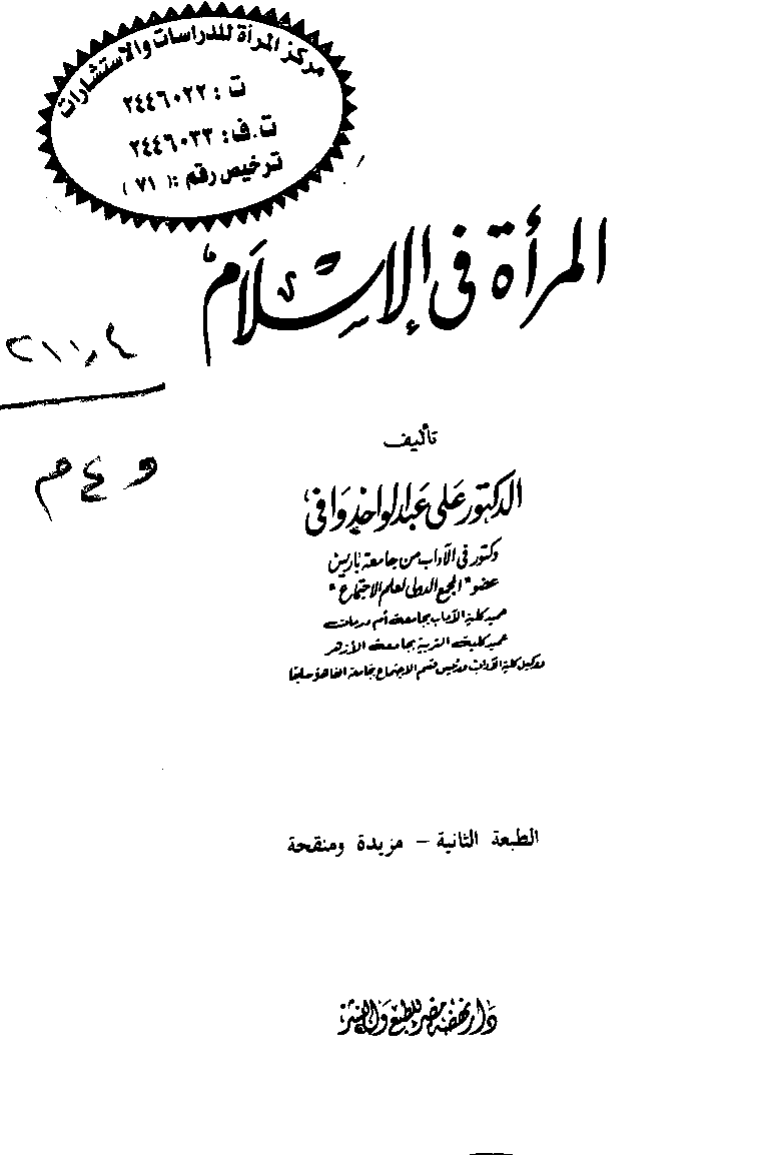 مركز المرأة للدراسات والاستشارات
ت : ٢٤٤٦٠٢٢
ت.ف: ٢٤٤٦٠٣٣
ترخيص رقم :( ٧١ )
المرأة فى الإسلام
٢١١,٤
و ع م
تأليف
الدكتور على عبد الواحد وافى
دكتور فى الآداب من جامعة باريس
عضو "المجمع الدولى لعلم الاجتماع"
عميد كلية الآداب بجامعة أم درمان
عميد كلية التربية بجامعة الأزهر
ووكيل كلية الآداب ورئيس قسم الاجتماع بجامعة القاهرة سابقا
الطبعة الثانية – مزيدة ومنقحة
دار نهضة مصر للطبع والنشر